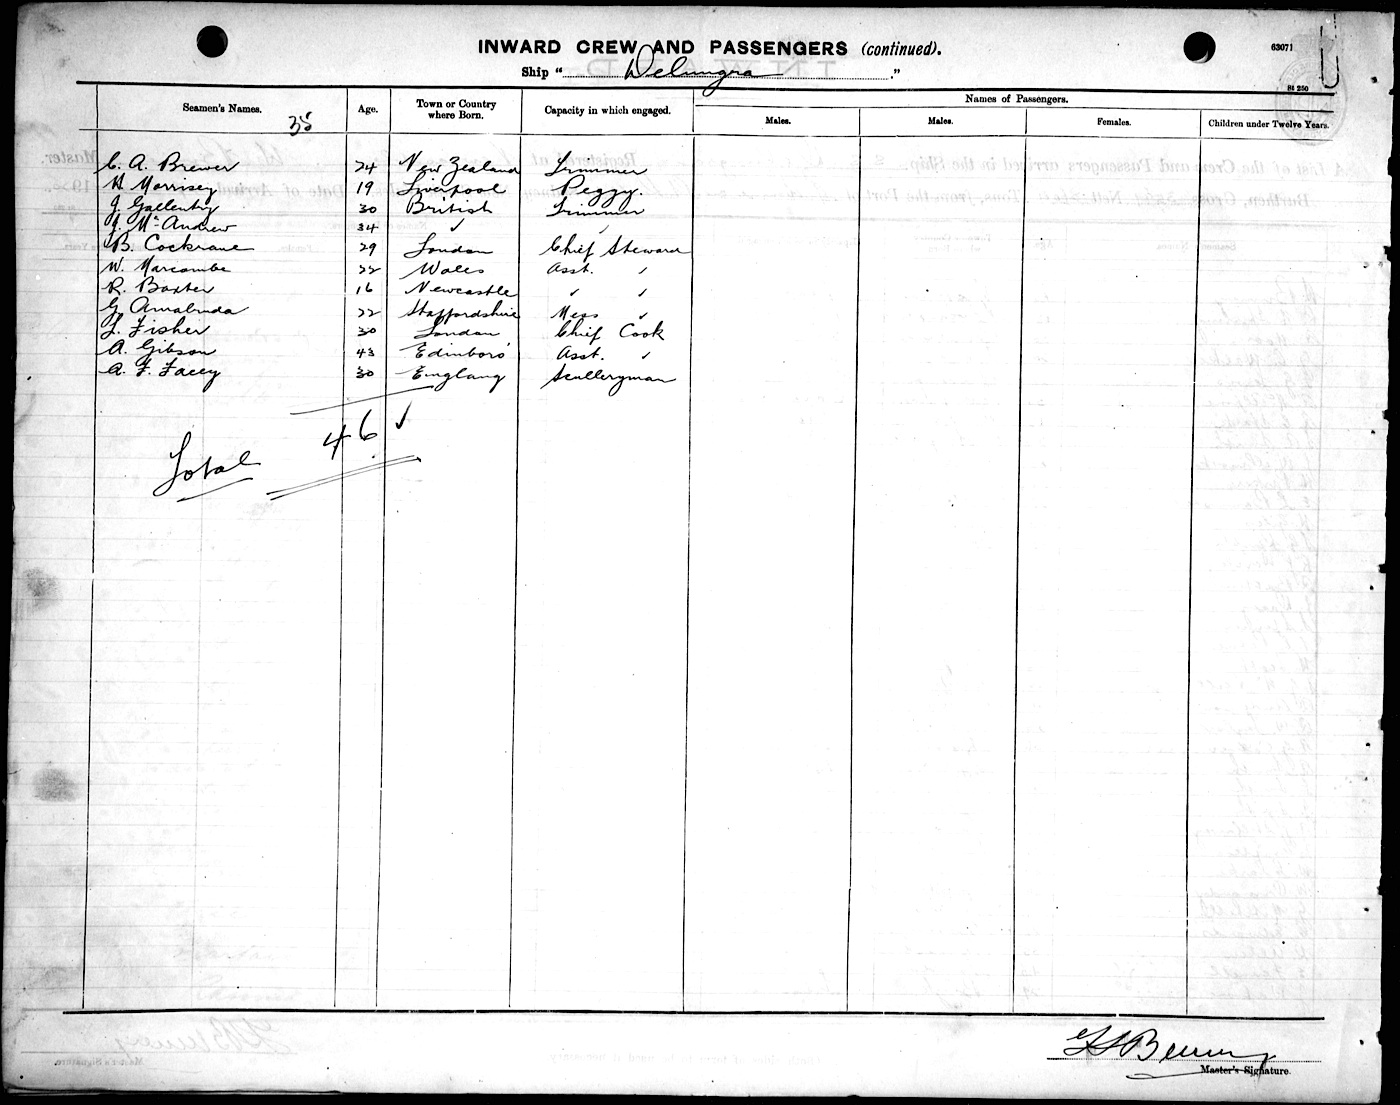 INWARD CREW AND PASSENGERS (continued).
63071
Ship " Delungra "
St 250
Seamen's Names. Age. Town or Country where Born. Capacity in which engaged. Names of Passengers.
Males. Males. Females. Children under Twelve Years.
35
C. A. Brewer 24 New Zealand Trimmer
H Morrisey 19 Liverpool Peggy.
J. Gallenty 30 British Trimmer
J. McAndrew 34 ✓ ✓
B. Cockrane 29 London Chief Steward
W. Marcombe 22 Wales Asst. ✓
R. Baxter 16 Newcastle ✓ ✓
G. 22 Staffordshire Mess ✓
L. Fisher 30 London Chief Cook
A. Gibson 43 Edinboro' Asst. ✓
A. F. Facey 30 England Sculleryman
Total 46 ✓
Master's Signature.